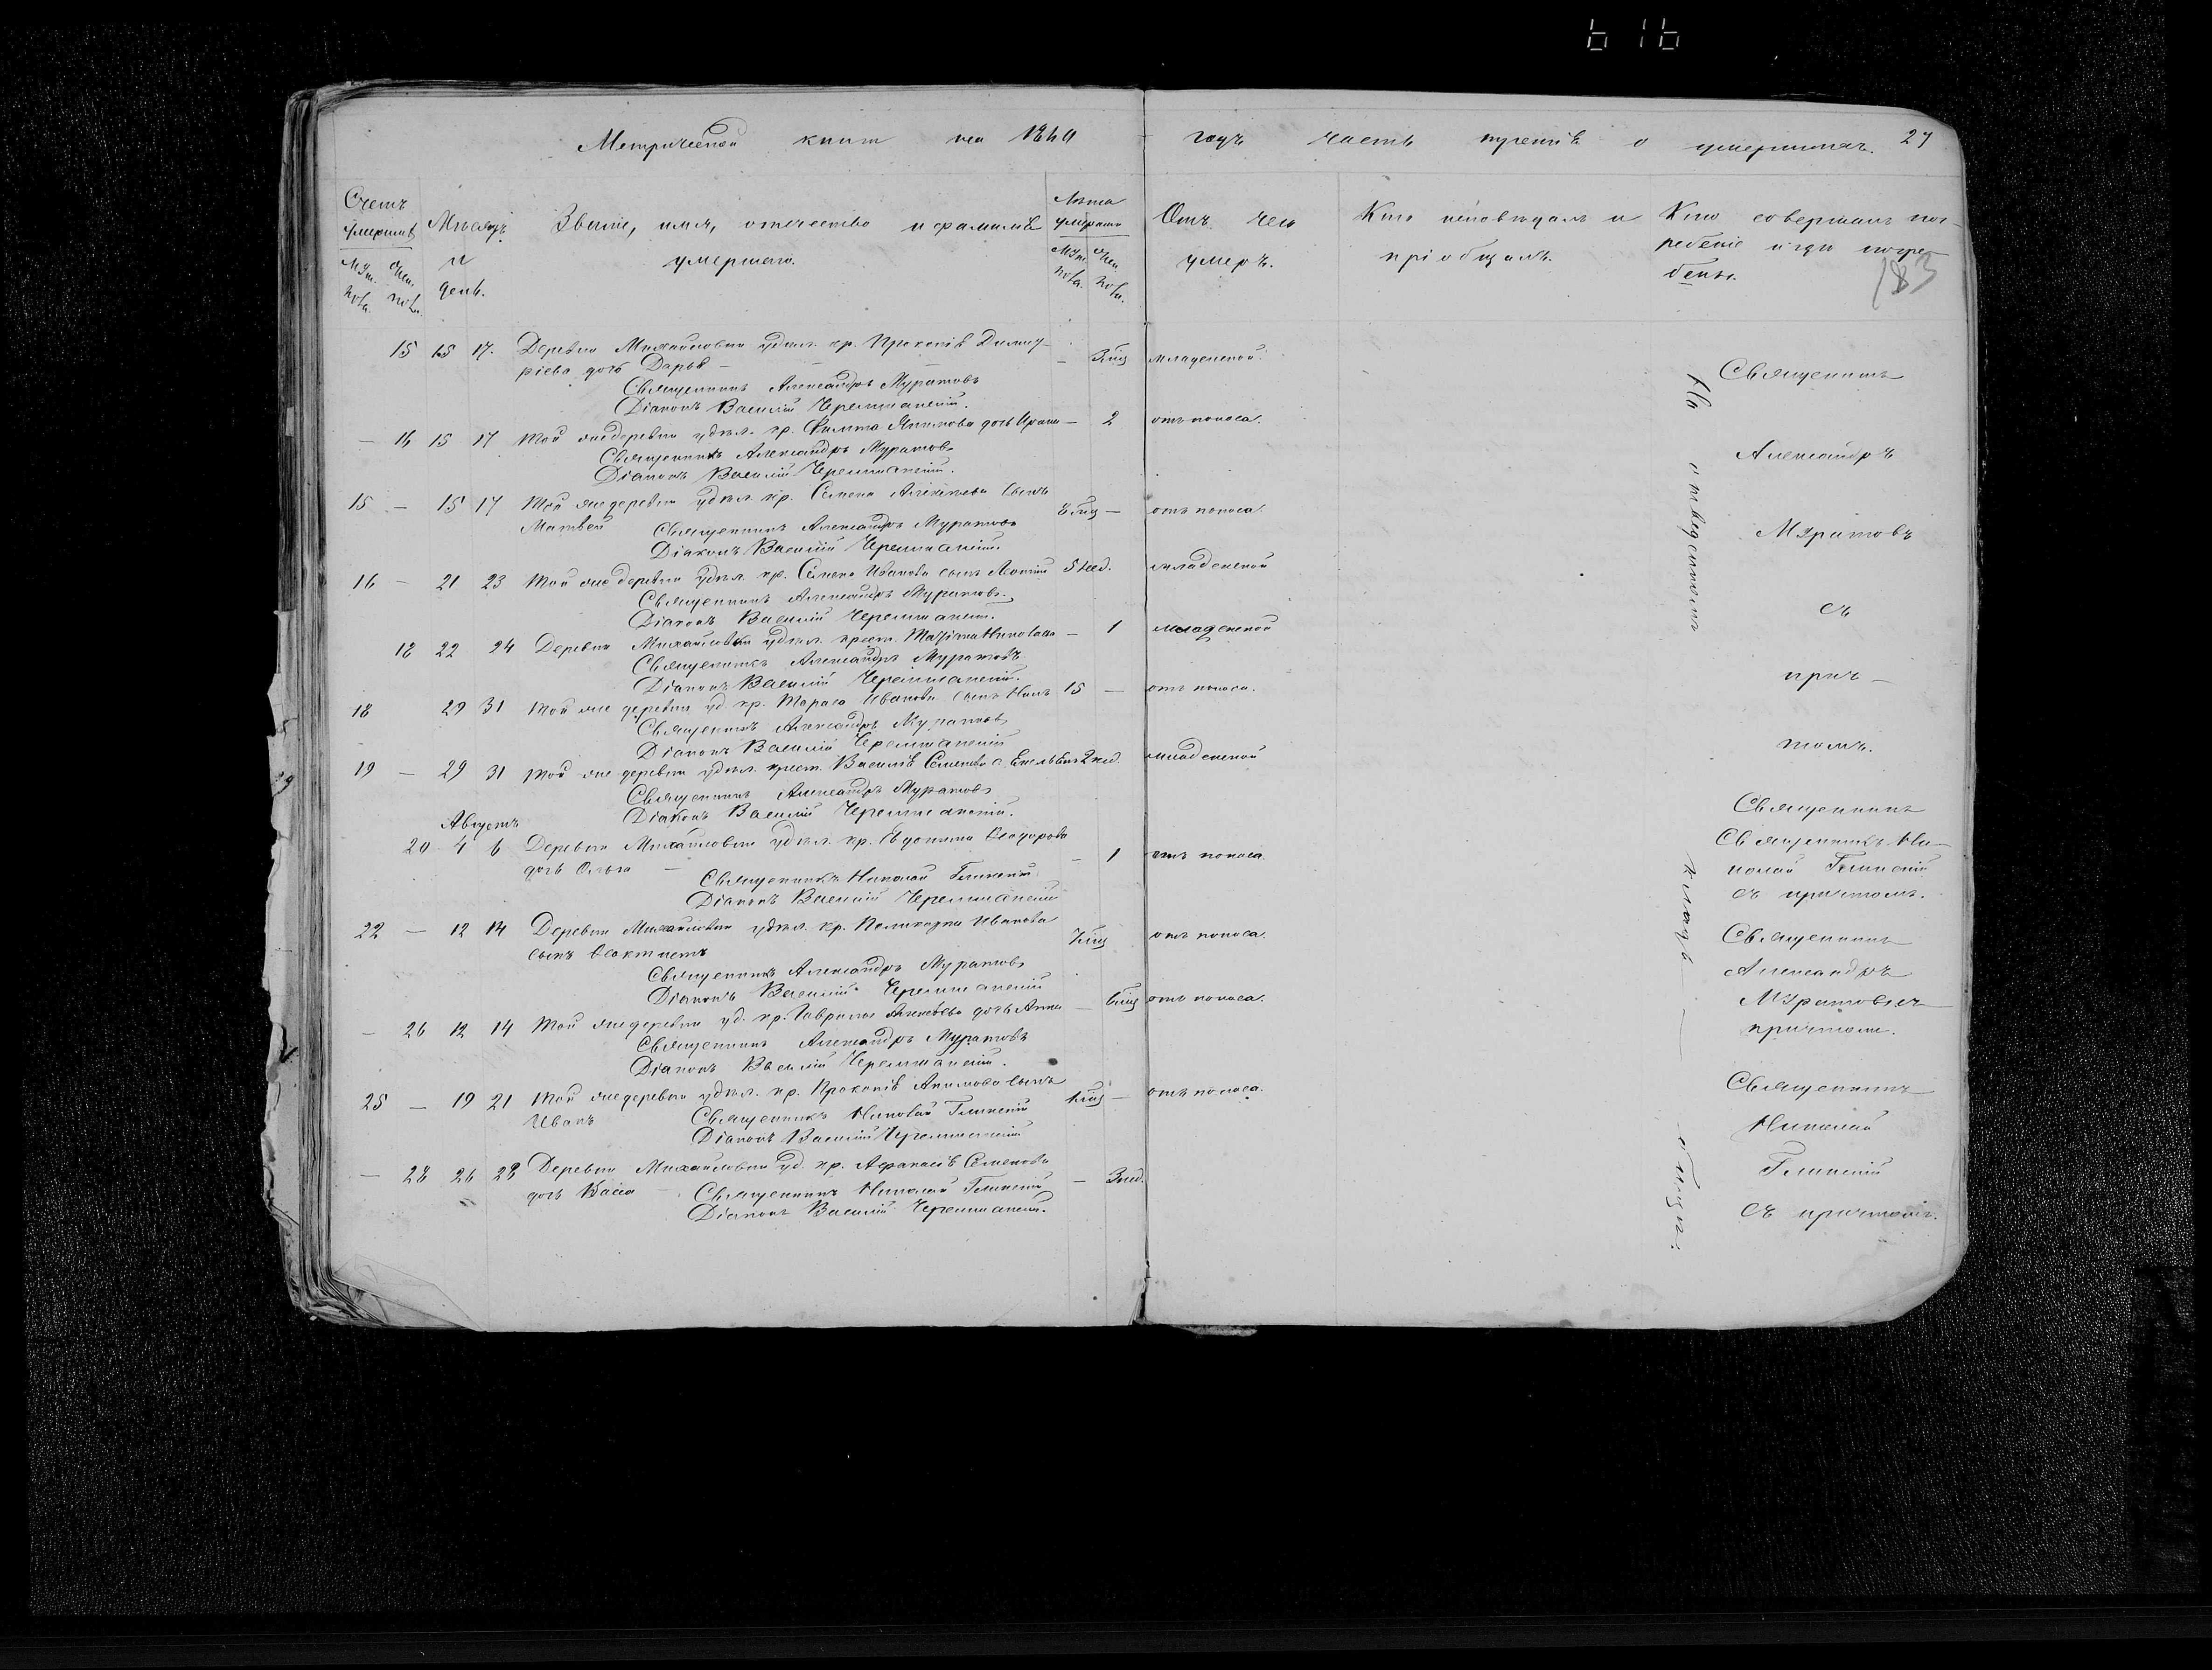 616
Метрической книги на 1860 годъ часть третія о умершихъ. 27
183
Счетъ умершихъ Мѣсяцъ и день. Званіе, имя, отчество и фамилія умершаго. Лѣта умершаго Отъ чего умеръ. Кто исповѣдалъ и пріобщалъ. Кто совершалъ погребеніе и гдѣ погребены.
Муж. пола. Жен. пола. Муж. пола. Жен. пола.
15 15 17. Деревни Михайловки удѣл. кр. Прокопія Дмит-
ріева дочь Дарья — — 3 мѣц младенской.
Священникъ Александръ Муратовъ
Діаконъ Василій Черемшанскій.
— 16 15 17 Той же деревни удѣл. кр. Филиппа Акимова дочь Ирина — 2 отъ поноса.
Священникъ Александръ Муратовъ
Діаконъ Василій Черемшанскій.
15 — 15 17 Той же деревни удѣл. кр. Семена Алексѣева сынъ
Матвей 8 мѣц — отъ поноса.
Священникъ Александръ Муратовъ
Діаконъ Василій Черемшанскій.
16 — 21 23 Той же деревни удѣл. кр. Семена Иванова сынъ 5 нед. младенской
Священникъ Александръ Муратовъ
Діаконъ Василій Черемшанскій.
18 22 24 Деревни Михайловки удѣл. крест. — 1 младенской
Священникъ Александръ Муратовъ
Діаконъ Василій Черемшанскій.
18 29 31 Той же деревни уд. кр. Тараса Иванова сынъ 15 — отъ поноса.
Священникъ Александръ Муратовъ
Діаконъ Василій Черемшанскій
19 — 29 31 Той же деревни удѣл. крест. Василія Семенова с. 2 нед. младенской
Священникъ Александръ Муратовъ
Діаконъ Василій Черемшанскій.
Августъ
20 4 6 Деревни Михайловки удѣл. кр. Евдокима Ѳеодорова
дочь Ольга — — 1 отъ поноса.
Священникъ Николай Глинскій
Діаконъ Василій Черемшанскій
22 — 12 14 Деревни Михайловки удѣл. кр. Поликарпа Иванова
сынъ Ѳеоктистъ 7 мѣц отъ поноса.
Священникъ Александръ Муратовъ
Діаконъ Василій Черемшанскій
— 26 12 14 Той же деревни уд. кр. Гаврилы дочь Анна — 6 мѣц отъ поноса.
Священникъ Александръ Муратовъ
Діаконъ Василій Черемшанскій.
25 — 19 21 Той же деревни удѣл. кр. Прокопія Акимова сынъ
Иванъ мѣц — отъ поноса.
Священникъ Николай Глинскій
Діаконъ Василій Черемшанскій
— 28 26 28 Деревни Михайловки уд. кр. Афанасія Семенова
дочь Васса — — 3 нед.
Священникъ Николай Глинскій
Діаконъ Василій Черемшанскій.
На отведенномъ кладбищѣ.
Священникъ
Александръ
Муратовъ
съ
прич-
томъ.
Священникъ
Священникъ Ни-
колай Глинскій
съ причтомъ.
Священникъ
Александръ
Муратовъ съ
причтомъ.
Священникъ
Николай
Глинскій
съ причтомъ.